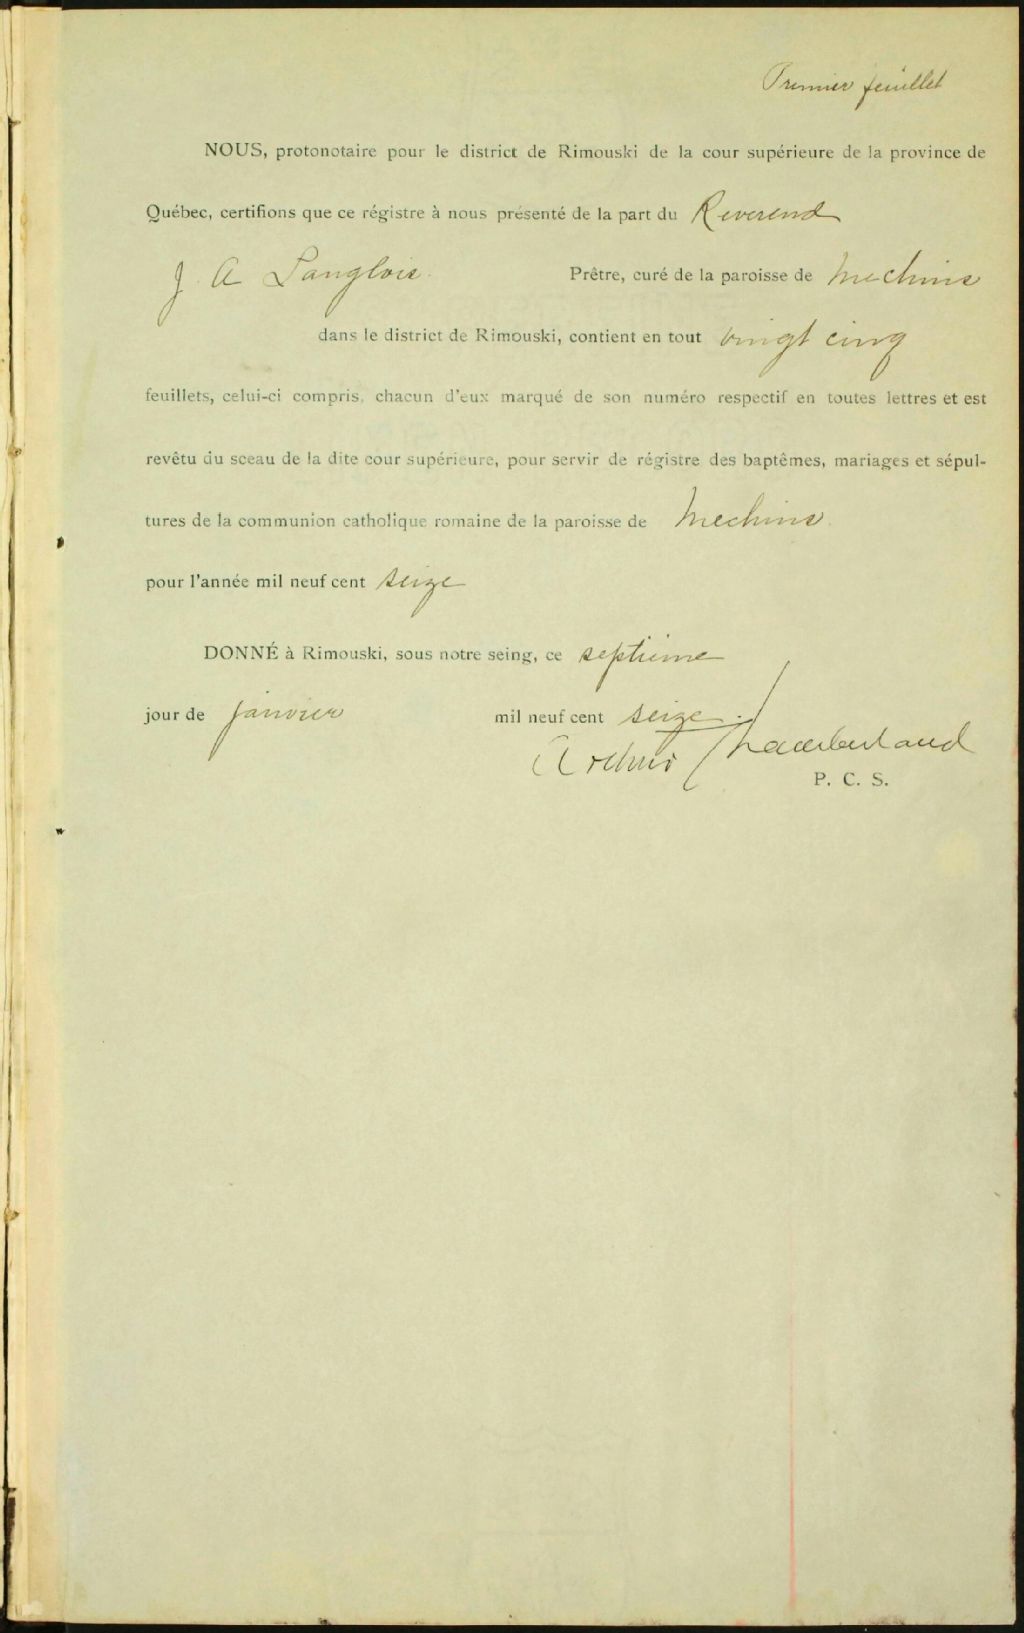 Premier feuillet
NOUS, protonotaire pour le district de Rimouski de la cour supérieure de la province de
Québec, certifions que ce régistre à nous présenté de la part du Reverend
J. A Langlois. Prêtre, curé de la paroisse de Mechins
dans le district de Rimouski, contient en tout vingt cinq
feuillets, celui-ci compris, chacun d'eux marqué de son numéro respectif en toutes lettres et est
revêtu du sceau de la dite cour supérieure, pour servir de régistre des baptêmes, mariages et sépul-
tures de la communion catholique romaine de la paroisse de Mechins
pour l'année mil neuf cent seize
DONNÉ à Rimouski, sous notre seing, ce septieme
jour de janvier mil neuf cent seize.
Arthur Chamberland
P. C. S.